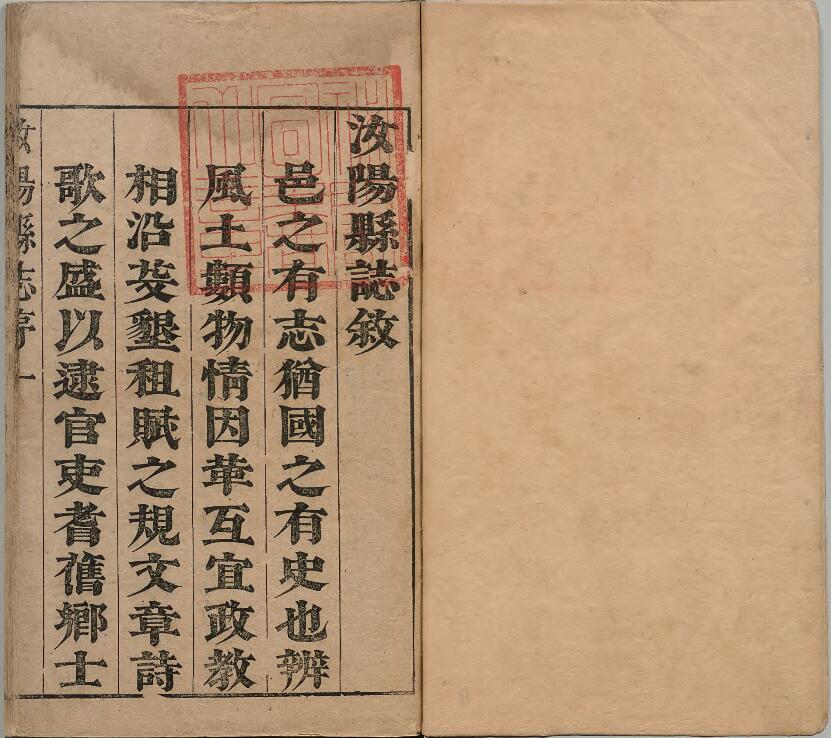 汝陽縣誌敘
邑之有志猶國之有史也辨
風土類物情因革互宜政教
相沿芟墾租賦之規文章詩
歌之盛以逮官吏耆舊鄉士
汝陽縣志序 一